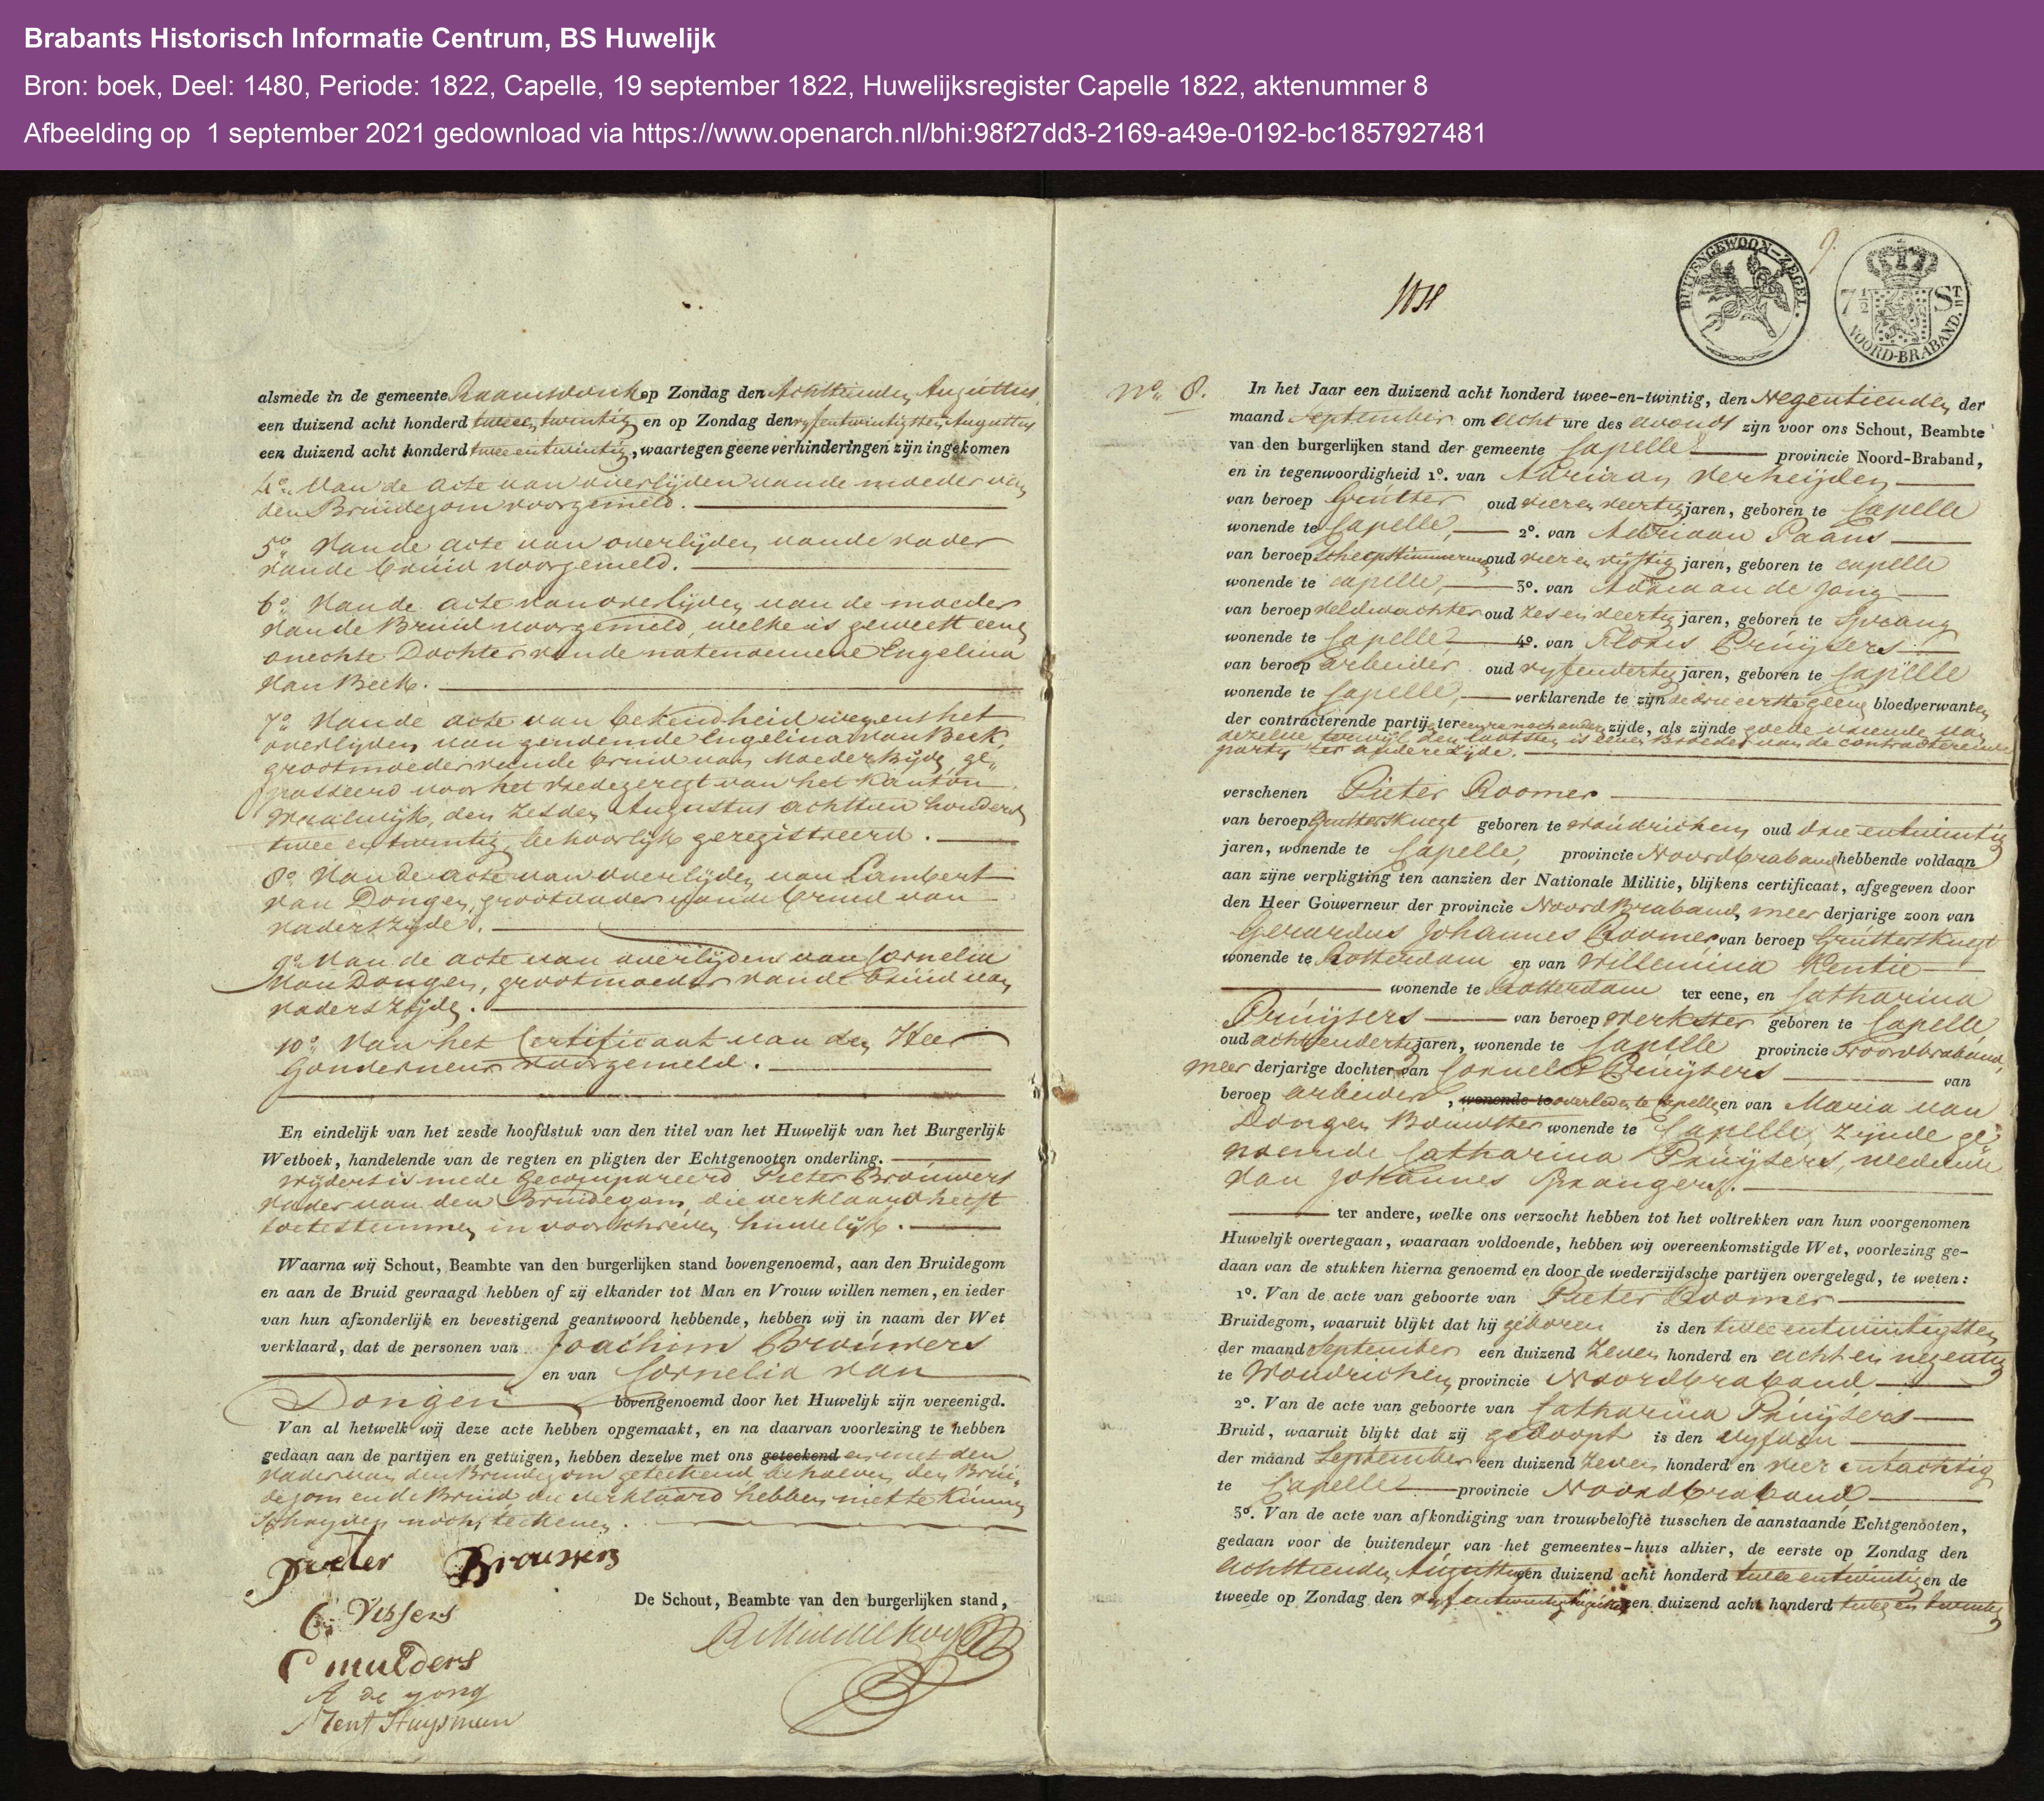 Brabants Historisch Informatie Centrum, BS Huwelijk
Bron: boek, Deel: 1480, Periode: 1822, Capelle, 19 september 1822, Huwelijksregister Capelle 1822, aktenummer 8
Afbeelding op 1 september 2021 gedownload via https://www.openarch.nl/bhi:98f27dd3-2169-a49e-0192-bc1857927481
alsmede in de gemeente Raamsdonk op Zondag den Achttienden Augustus
een duizend acht honderd twee en twintig en op Zondag den vyfentwintigsten Augustus
een duizend acht honderd twee entwintig, waartegen geene verhinderingen zijn ingekomen
4o. Van de acte van overlijden vande moeder van
den Bruidegom voorgemeld.
5o. Vande acte van overlijden vande vader
vande bruid voorgemeld.
6o. Vande acte van overlijden van de moeder
vande Bruid voorgemeld, welke is geweest eene
onechte Dochter vande natenoemene Engelina
Van Beek.
7o. Vande acte van bekendheid wegens het
overlijden van genoemde Engelina van Beek,
grootmoeder vande bruid van Moederszijde ge-
passeerd voor het vredegeregt van het Kanton
Waalwijk, den zesden Augustus achttien honderd
twee en twintig, behoorlijk geregistreerd.
8o. Van de acte van overlijden van Lambert
van Dongen, grootvader vande bruid van
vaderszijde.
9o. Van de acte van overlijden van Cornelia
Van Dongen, grootmoeder vande bruid van
vaderszijde.
10o. Van het Certificaat van den Heer
Gouverneur voorgemeld.
En eindelijk van het zesde hoofdstuk van den titel van het Huwelijk van het Burgerlijk
Wetboek, handelende van de regten en pligten der Echtgenooten onderling.
wijders is mede gecompareerd Pieter Brouwers
vader van den Bruidegom, die verklaard heeft
toetestemmen in voorschreven huwelijk.
Waarna wij Schout, Beambte van den burgerlijken stand bovengenoemd, aan den Bruidegom
en aan de Bruid gevraagd hebben of zij elkander tot Man en Vrouw willen nemen, en ieder
van hun afzonderlijk en bevestigend geantwoord hebbende, hebben wij in naam der Wet
verklaard, dat de personen van Joachim Brouwers
en van Cornelia van
Dongen bovengenoemd door het Huwelijk zijn vereenigd.
Van al hetwelk wij deze acte hebben opgemaakt, en na daarvan voorlezing te hebben
gedaan aan de partijen en getuigen, hebben dezelve met ons geteekend en met den
vader van den Bruidegom geteekend, behalven den Brui-
degom en de Bruid, die verklaard hebben niet te kunnen
schryven noch teekenen.
pieter Brouwers
C Vissers
C mulders
A de yong
Zent Huysman
De Schout, Beambte van den burgerlijken stand,
9.
BUITENGEWOON-ZEGEL.
7 1/2 ST.
NOORD-BRABAND.
No. 8. In het Jaar een duizend acht honderd twee-en-twintig, den Negentienden der
maand September om acht ure des avonds zijn voor ons Schout, Beambte
van den burgerlijken stand der gemeente Capelle provincie Noord-Braband,
en in tegenwoordigheid 1o. van Adriaan Verheijden
van beroep Grutter oud vier en veertig jaren, geboren te Capelle
wonende te Capelle, 2o. van Adriaan Paans
van beroep scheepstimmerman oud vier en vijftig jaren, geboren te capelle
wonende te capelle, 3o. van Adriaan de Jong
van beroep veldwachter oud zes en veertig jaren, geboren te Sprang
wonende te Capelle 4o. van Klaas Pruijsers
van beroep arbeider oud vyfendertig jaren, geboren te Capelle
wonende te Capelle, verklarende te zijn de drie eerste geene bloedverwanten
der contracterende partij ter eenre noch andere zijde, als zijnde goede vriende van
dezelve terwijl den laatsten is eenen Broeder van de contracterende
party ter andere zijde.
verschenen Pieter Roomer
van beroep Gruttersknegt geboren te Woudrichem oud drie entwintig
jaren, wonende te Capelle, provincie Noordbraband hebbende voldaan
aan zijne verpligting ten aanzien der Nationale Militie, blijkens certificaat, afgegeven door
den Heer Gouverneur der provincie NoordBraband, meer derjarige zoon van
Gerardus Johannes Roomer van beroep Gruttersknegt
wonende te Rotterdam en van Willemina Kentie
wonende te Rotterdam ter eene, en Catharina
Pruijsers van beroep werkster geboren te Capelle
oud achtendertig jaren, wonende te Capelle provincie Noordbraband,
meer derjarige dochter van Cornelis Pruijsers van
beroep arbeider, wonende te overleden te Capelle en van Maria van
Dongen Bouwster wonende te Capelle, zijnde ge-
noemde Catharina Pruijsers, weduwe
van Johannes Sprangers.
ter andere, welke ons verzocht hebben tot het voltrekken van hun voorgenomen
Huwelijk overtegaan, waaraan voldoende, hebben wij overeenkomstig de Wet, voorlezing ge-
daan van de stukken hierna genoemd en door de wederzijdsche partijen overgelegd, te weten:
1o. Van de acte van geboorte van Pieter Roomer
Bruidegom, waaruit blijkt dat hij geboren is den tweeentwintigsten
der maand September een duizend zeven honderd en acht en negentig
te Woudrichem provincie Noordbraband
2o. Van de acte van geboorte van Catharina Pruijsers
Bruid, waaruit blijkt dat zij gedoopt is den vyfden
der maand September een duizend zeven honderd en vier entachtig
te Capelle provincie Noordbraband
3o. Van de acte van afkondiging van trouwbelofte tusschen de aanstaande Echtgenooten,
gedaan voor de buitendeur van het gemeentes-huis alhier, de eerste op Zondag den
achttienden Augustus een duizend acht honderd twee entwintig en de
tweede op Zondag den vyf entwintigsten Augustus een duizend acht honderd twee en twintig